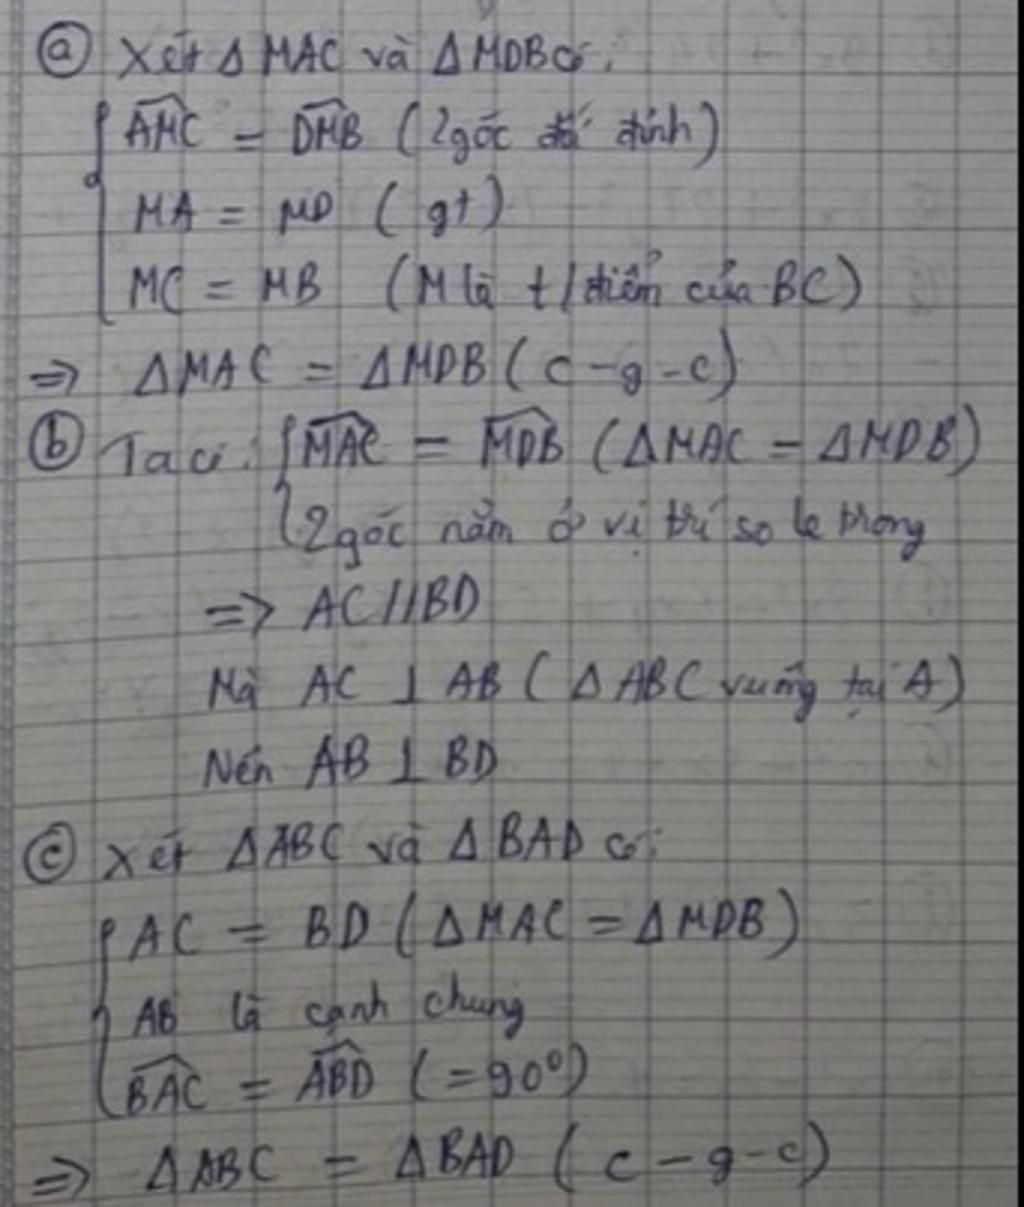 a) Xét Δ MAC và Δ MDB có:
AMC = DMB (2 góc đối đỉnh)
MA = MD (gt)
MC = MB (M là t/điểm của BC)
=> ΔMAC = ΔMDB (c-g-c)
b) Ta có: MAC = MDB (ΔMAC = ΔMDB)
2 góc nằm ở vị trí so le trong
=> AC//BD
Mà AC ⊥ AB (ΔABC vuông tại A)
Nên AB ⊥ BD
c) Xét ΔABC và ΔBAD có:
AC = BD (ΔMAC = ΔMDB)
AB là cạnh chung
BAC = ABD (=90°)
=> ΔABC = ΔBAD (c-g-c)